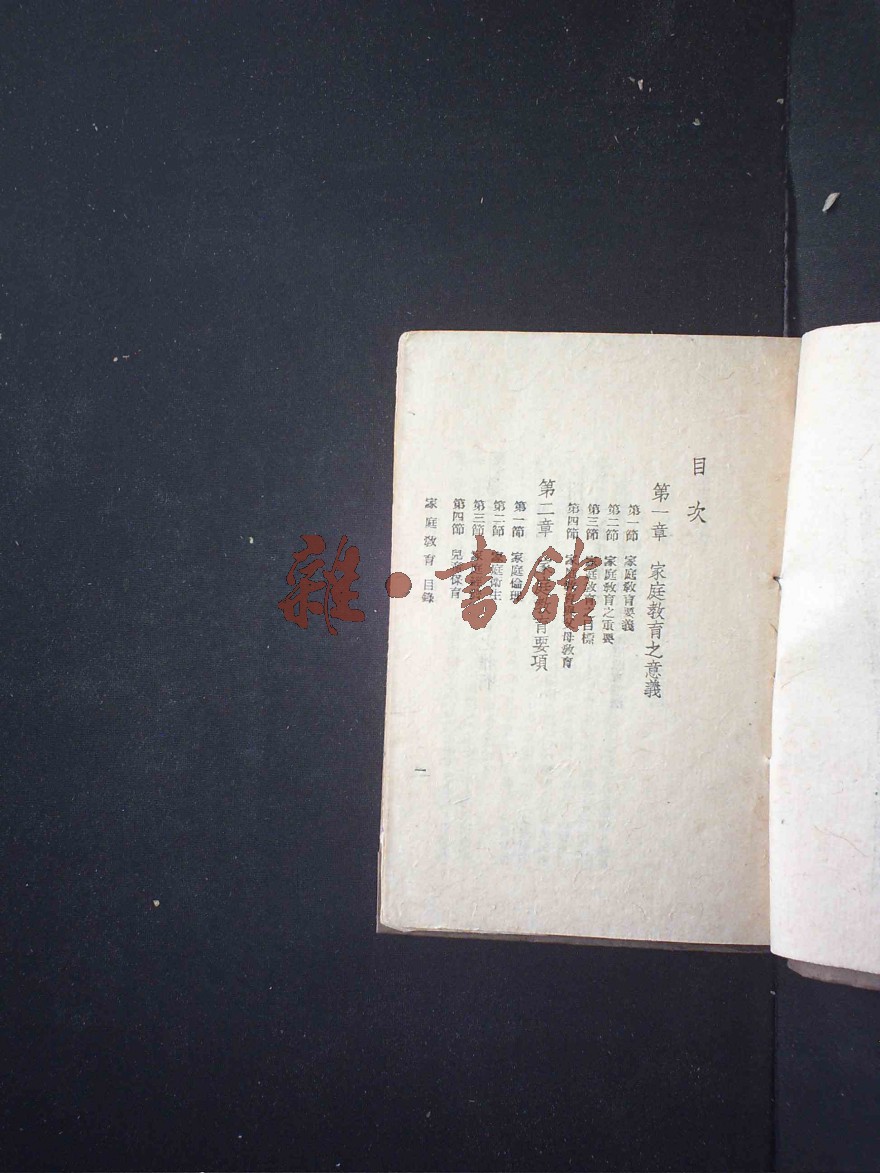 目次
第一章 家庭敎育之意義
第一節 家庭敎育要義
第二節 家庭敎育之重要
第三節 家庭敎育之目標
第四節 家庭 父母敎育
第二章 家庭敎育要項
第一節 家庭倫理
第二節 家庭衛生
第三節 家庭
第四節 兒童保育
家庭敎育 目錄
一
雜·書館